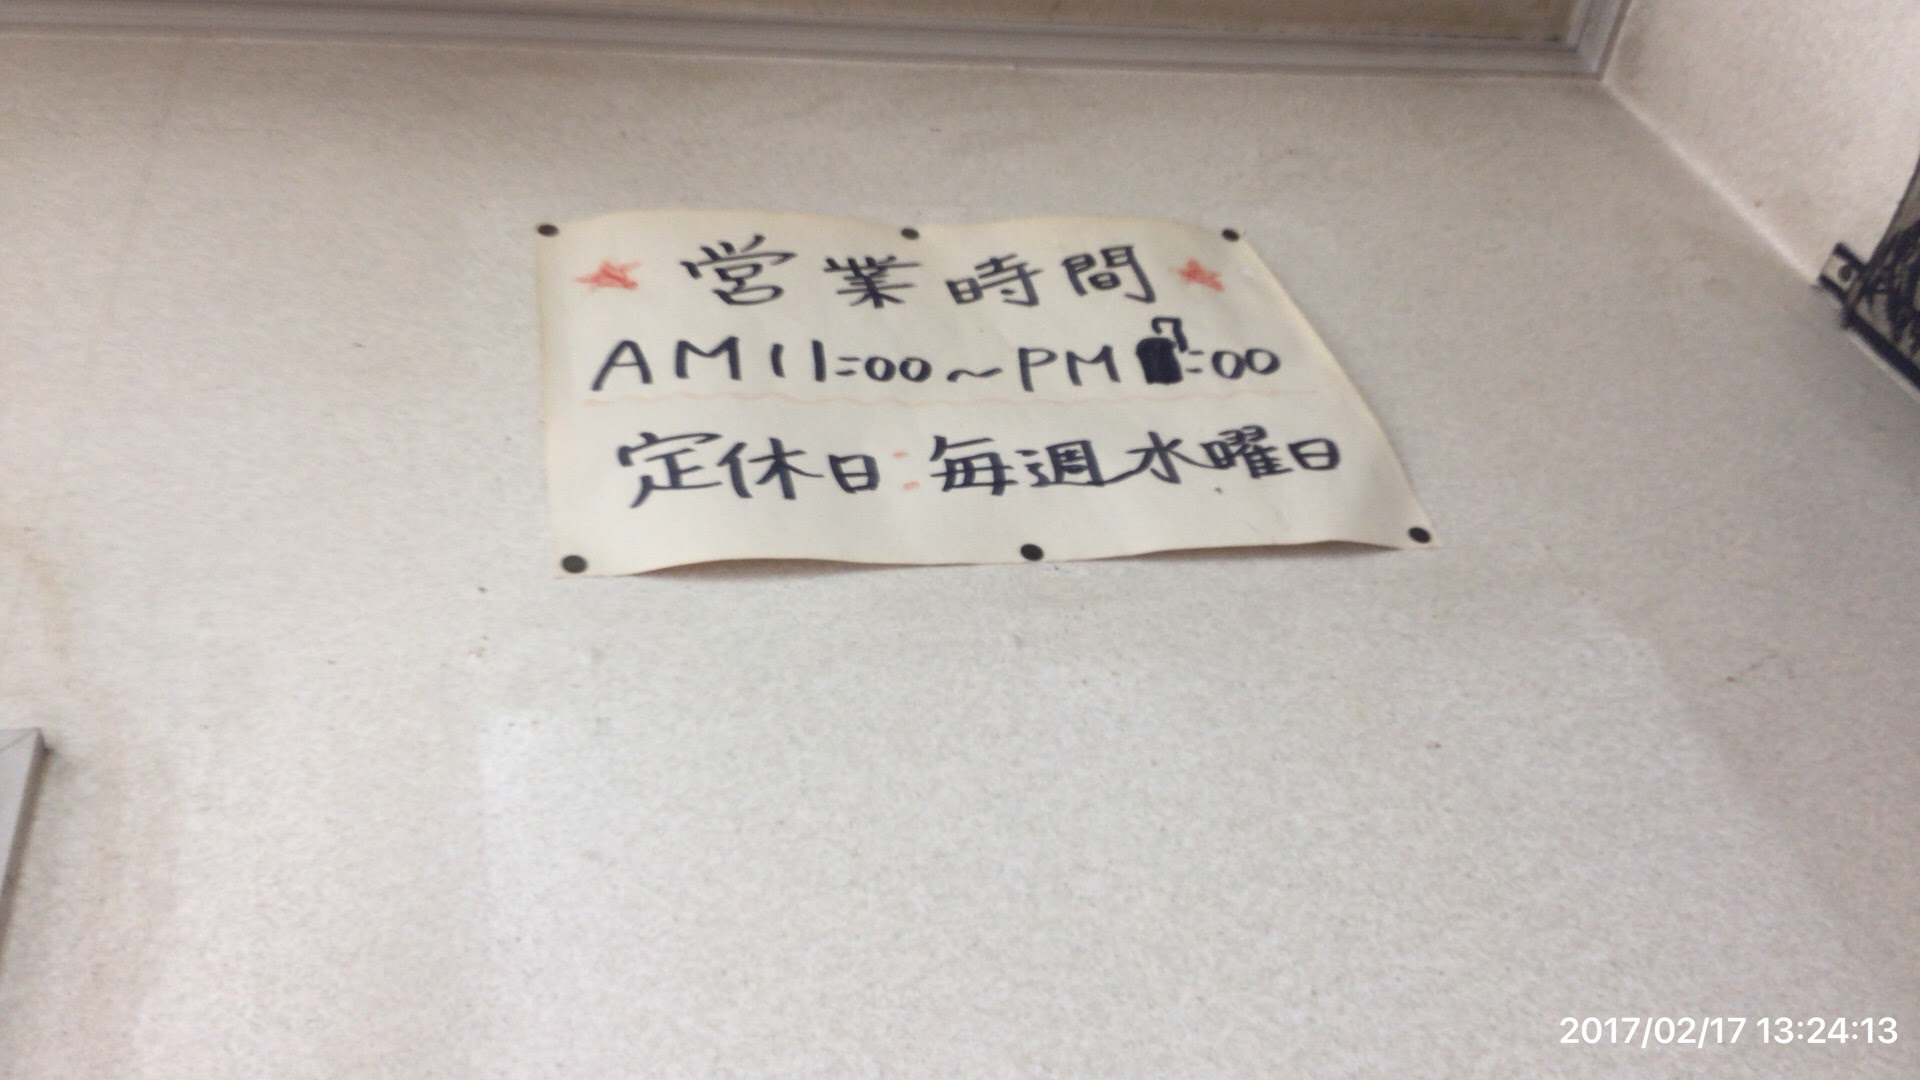 営業時間
AM11:00～PM7:00
定休日:毎週水曜日
2017/02/17 13:24:13